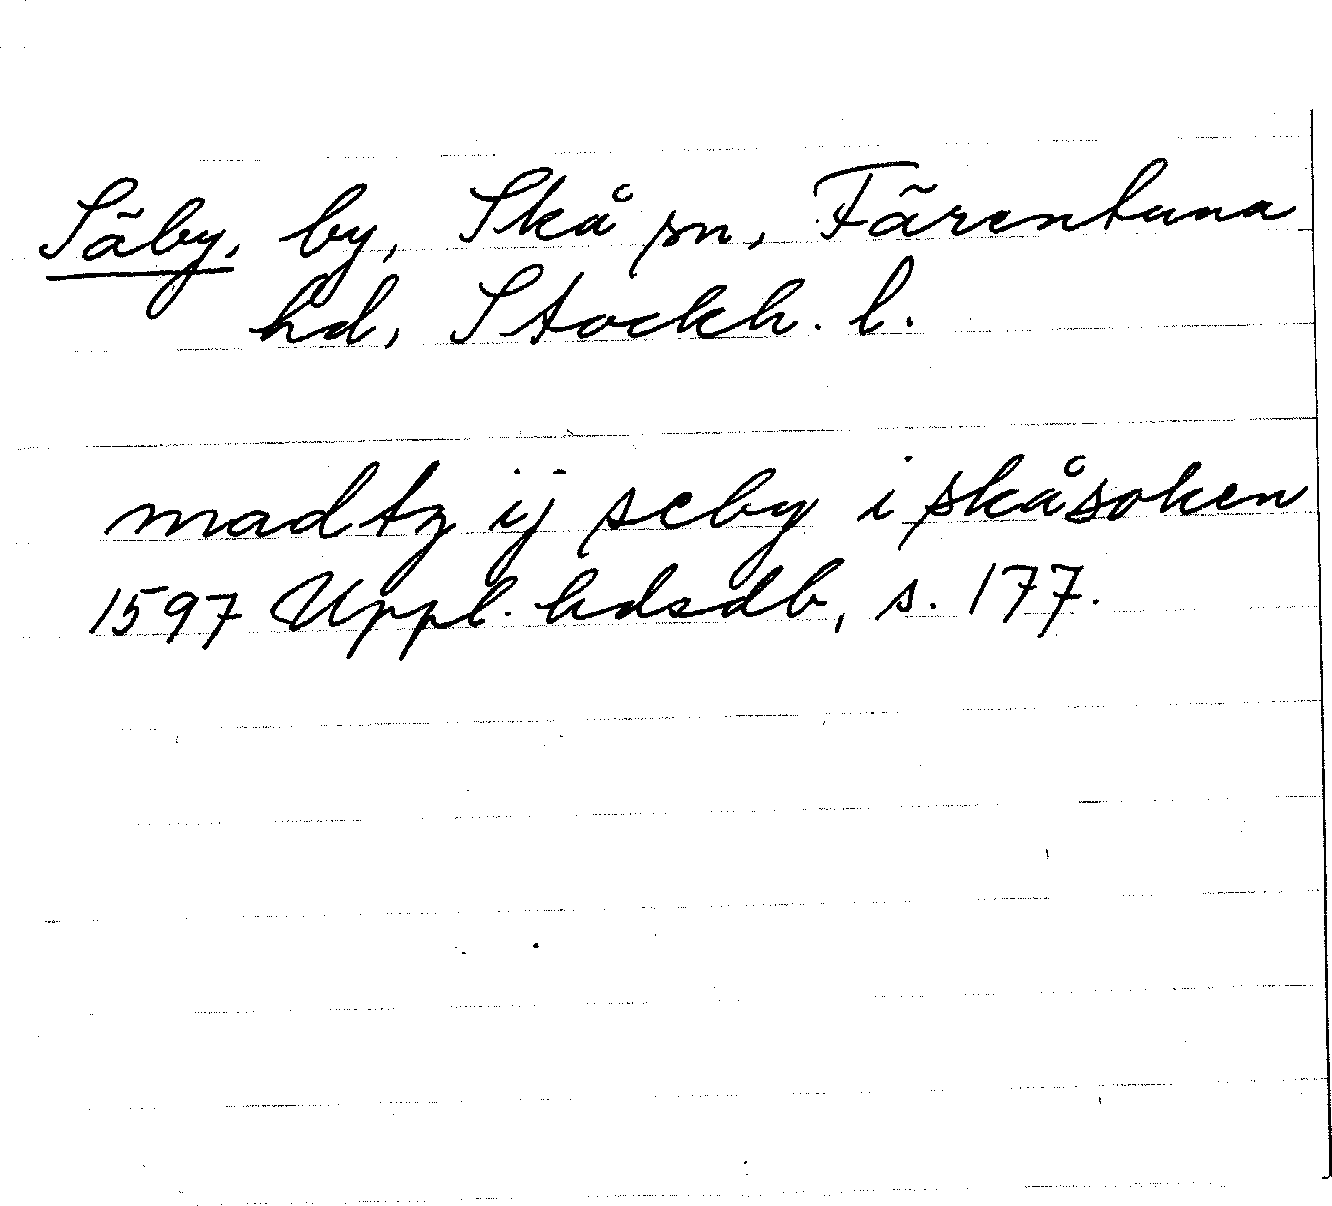 Säby, by, Skå sn, Färentuna
hd, Stockh. l.
madtz ij seby i skåsoken
1597 Uppl. hdsdb, s. 177.